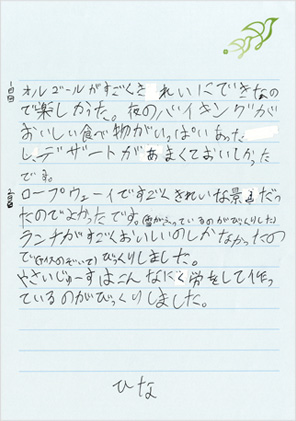 1日目 オルゴールがすごくきれいにできなの
で楽しかった。夜のバイキングが
おいしい食べ物がいっぱいあった
し、デザートがあまくておいしかった
です。
2日目 ロープウェーイですごくきれいな景色だっ
たのでよかったです。(雪がふっているのがびっくりした)
ランチがすごくおいしいのしかなかったの
で びっくりしました。
やさいじゅーすはこんなにく労をして作っ
ているのがびっくりしました。
ひな